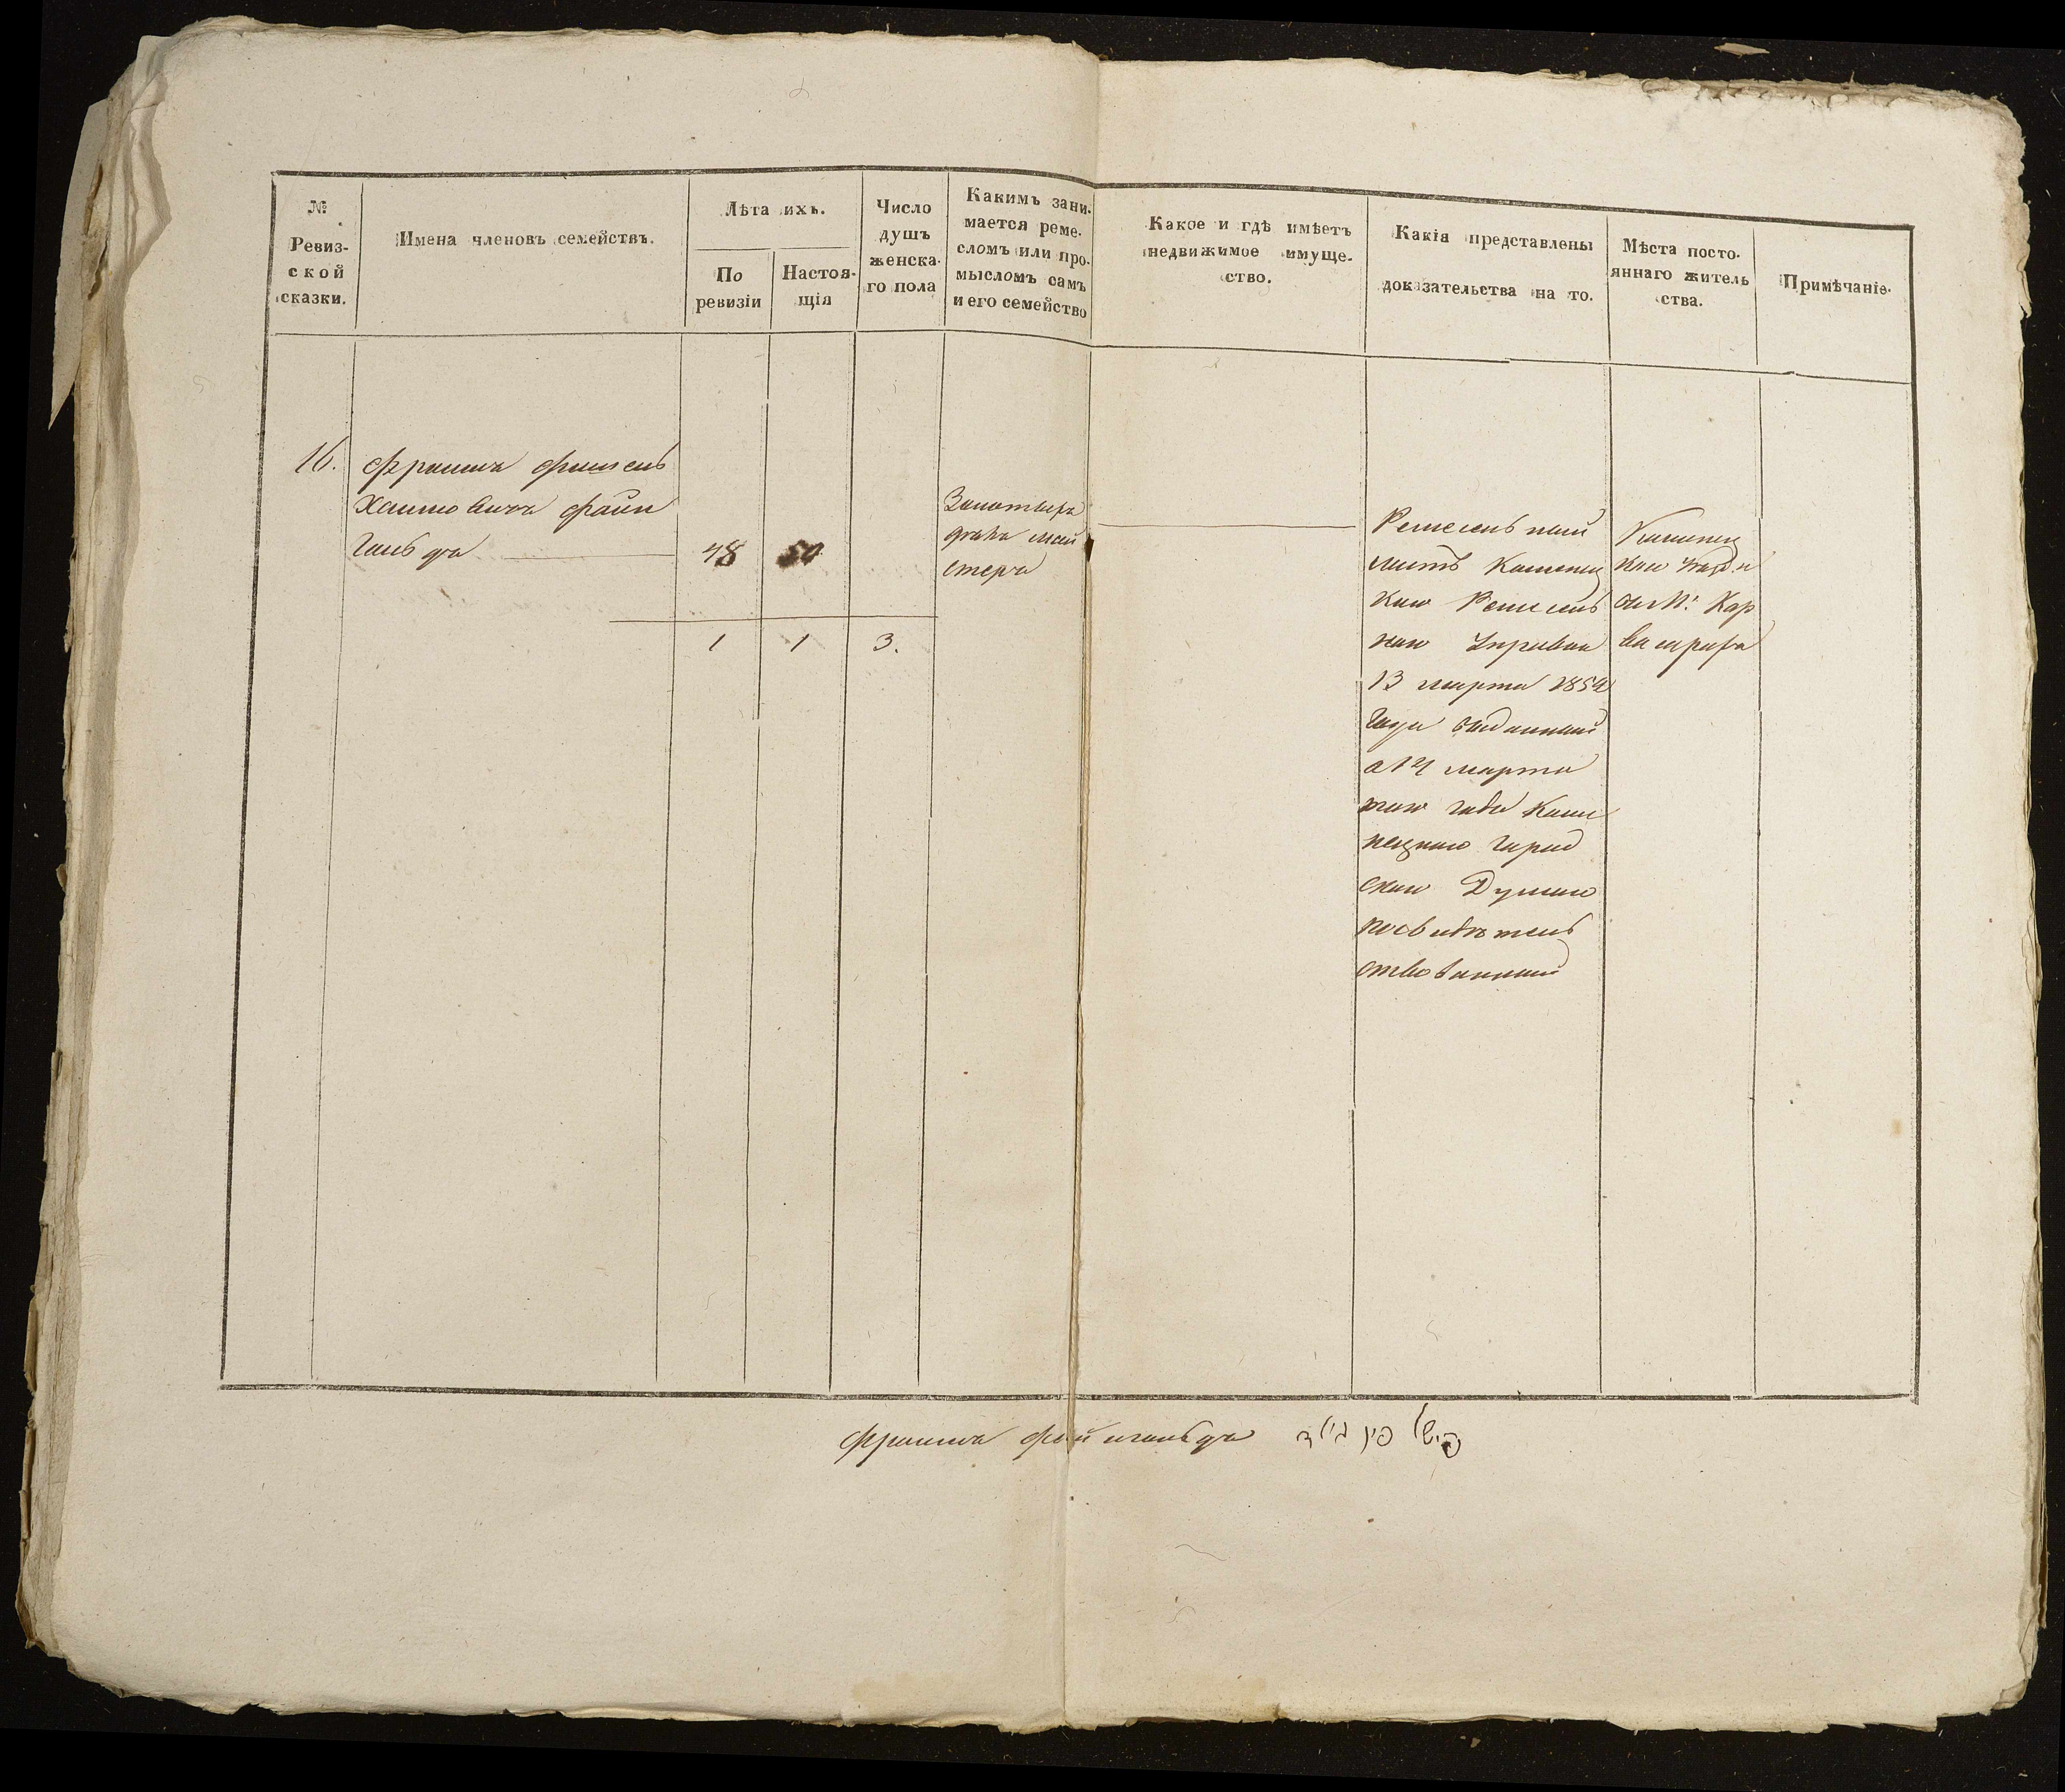 №
Ревиз-
ской
сказки.
Имена членовъ семействъ.
Лѣта ихъ.
По
ревизіи
Настоя-
щія
Число
душъ
женска-
го пола
Какимъ зани-
мается реме-
сломъ или про-
мысломъ самъ
и его семейство
Какое и гдѣ имѣетъ
недвижимое имуще-
ство.
Какія представлены
доказательства на то.
Мѣста посто-
яннаго житель
ства.
Примѣчаніе.
16.
Фроимъ Фишель
Хаимовичъ Файн
гольдъ
48
50
1
1
3.
май
стеръ
Ремесленный
листъ Каменец
кою Ремеслен
ною Управою
13 марта 1854
года выданный
а 14 марта
того года Каме
нецкою Город
скою Думою
посвидѣтель
ствованный
Каменец
Кар
васарахъ
Фроимъ Файнгольдъ פישל פיין גולד